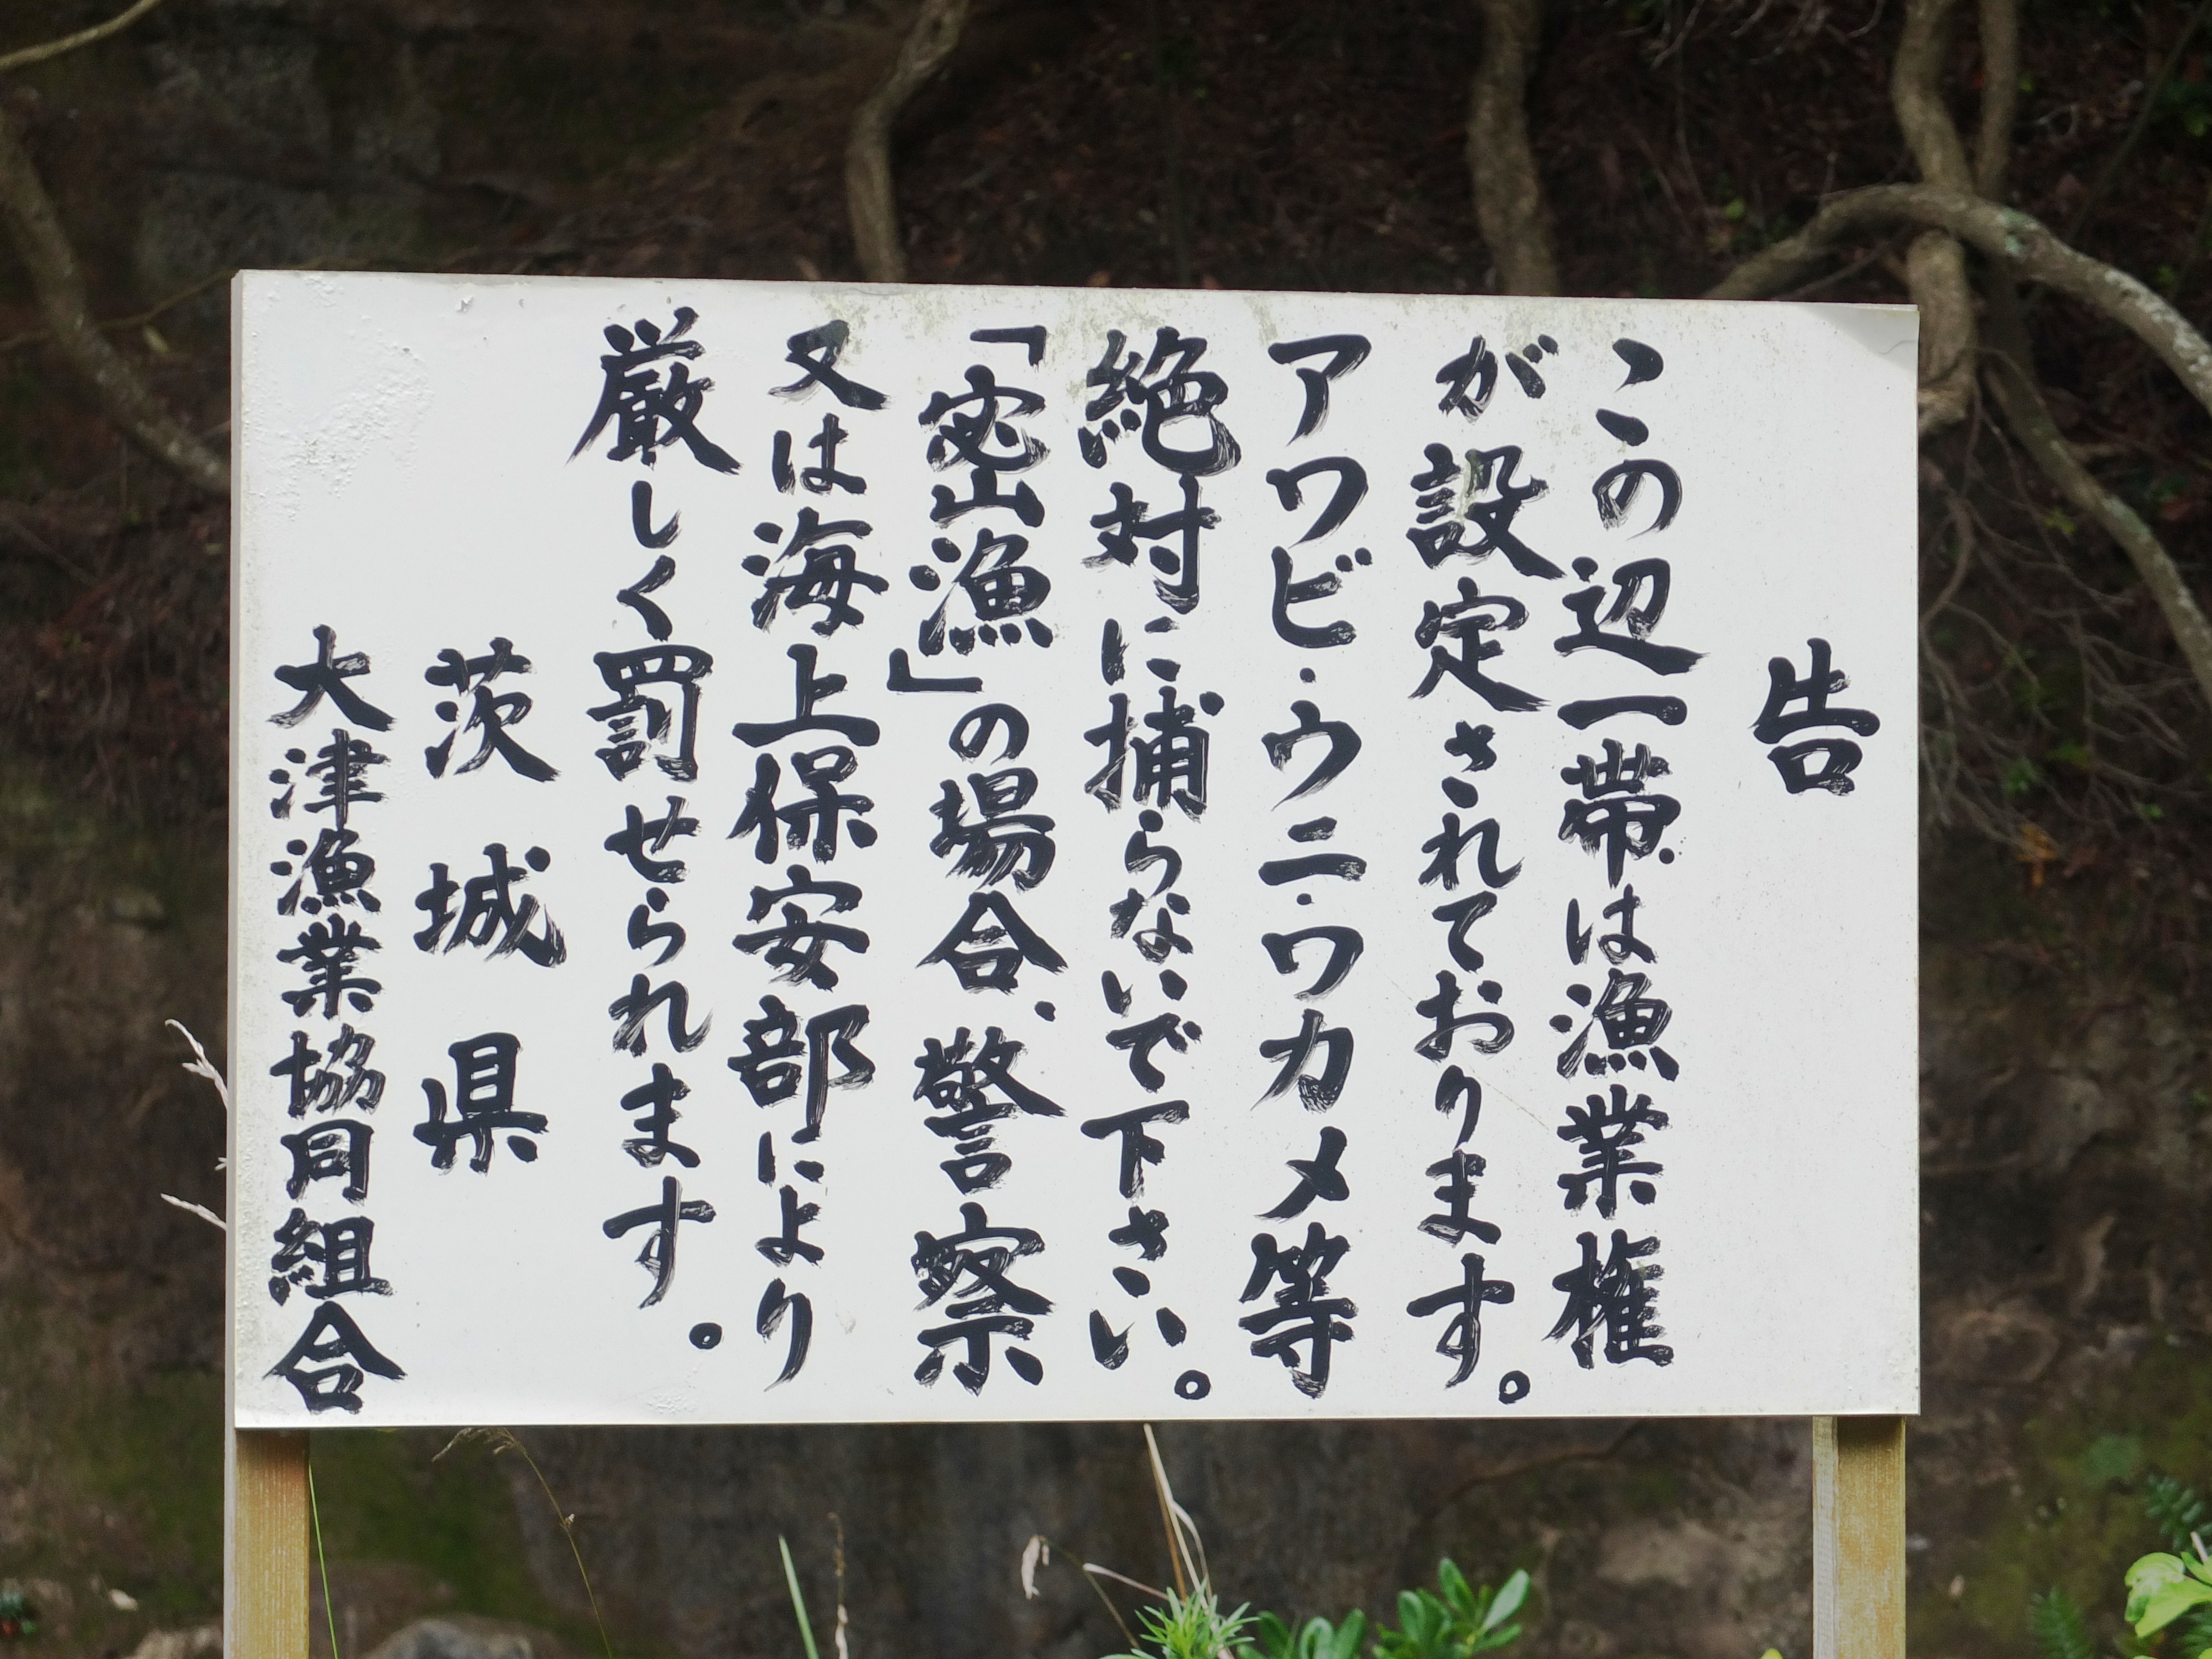 告
この辺一帯は漁業権
が設定されております。
アワビ・ウニ・ワカメ等
絶対に捕らないで下さい。
「密漁」の場合、警察
又は海上保安部により
厳しく罰せられます。
茨城県
大津漁業協同組合